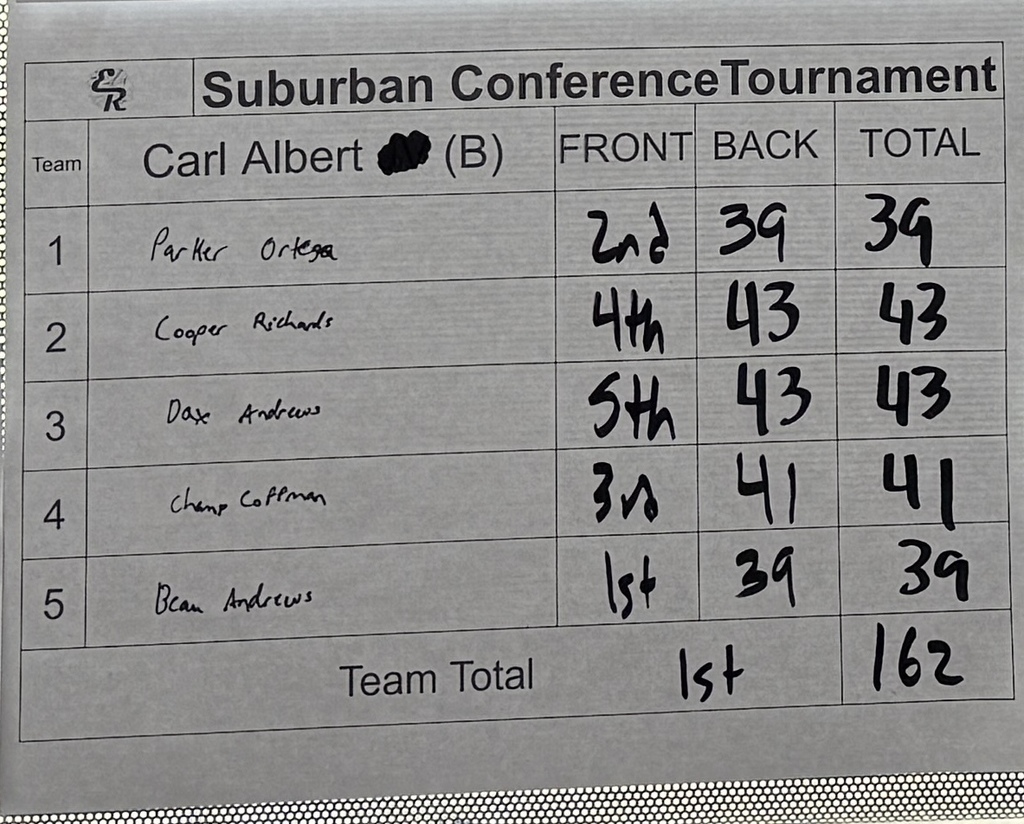 ER
Suburban Conference Tournament
Team Carl Albert (B) FRONT BACK TOTAL
1 Parker Ortega 2nd 39 39
2 Cooper Richards 4th 43 43
3 Dax Andrews 5th 43 43
4 Champ Coffman 3rd 41 41
5 Beau Andrews 1st 39 39
Team Total 1st 162